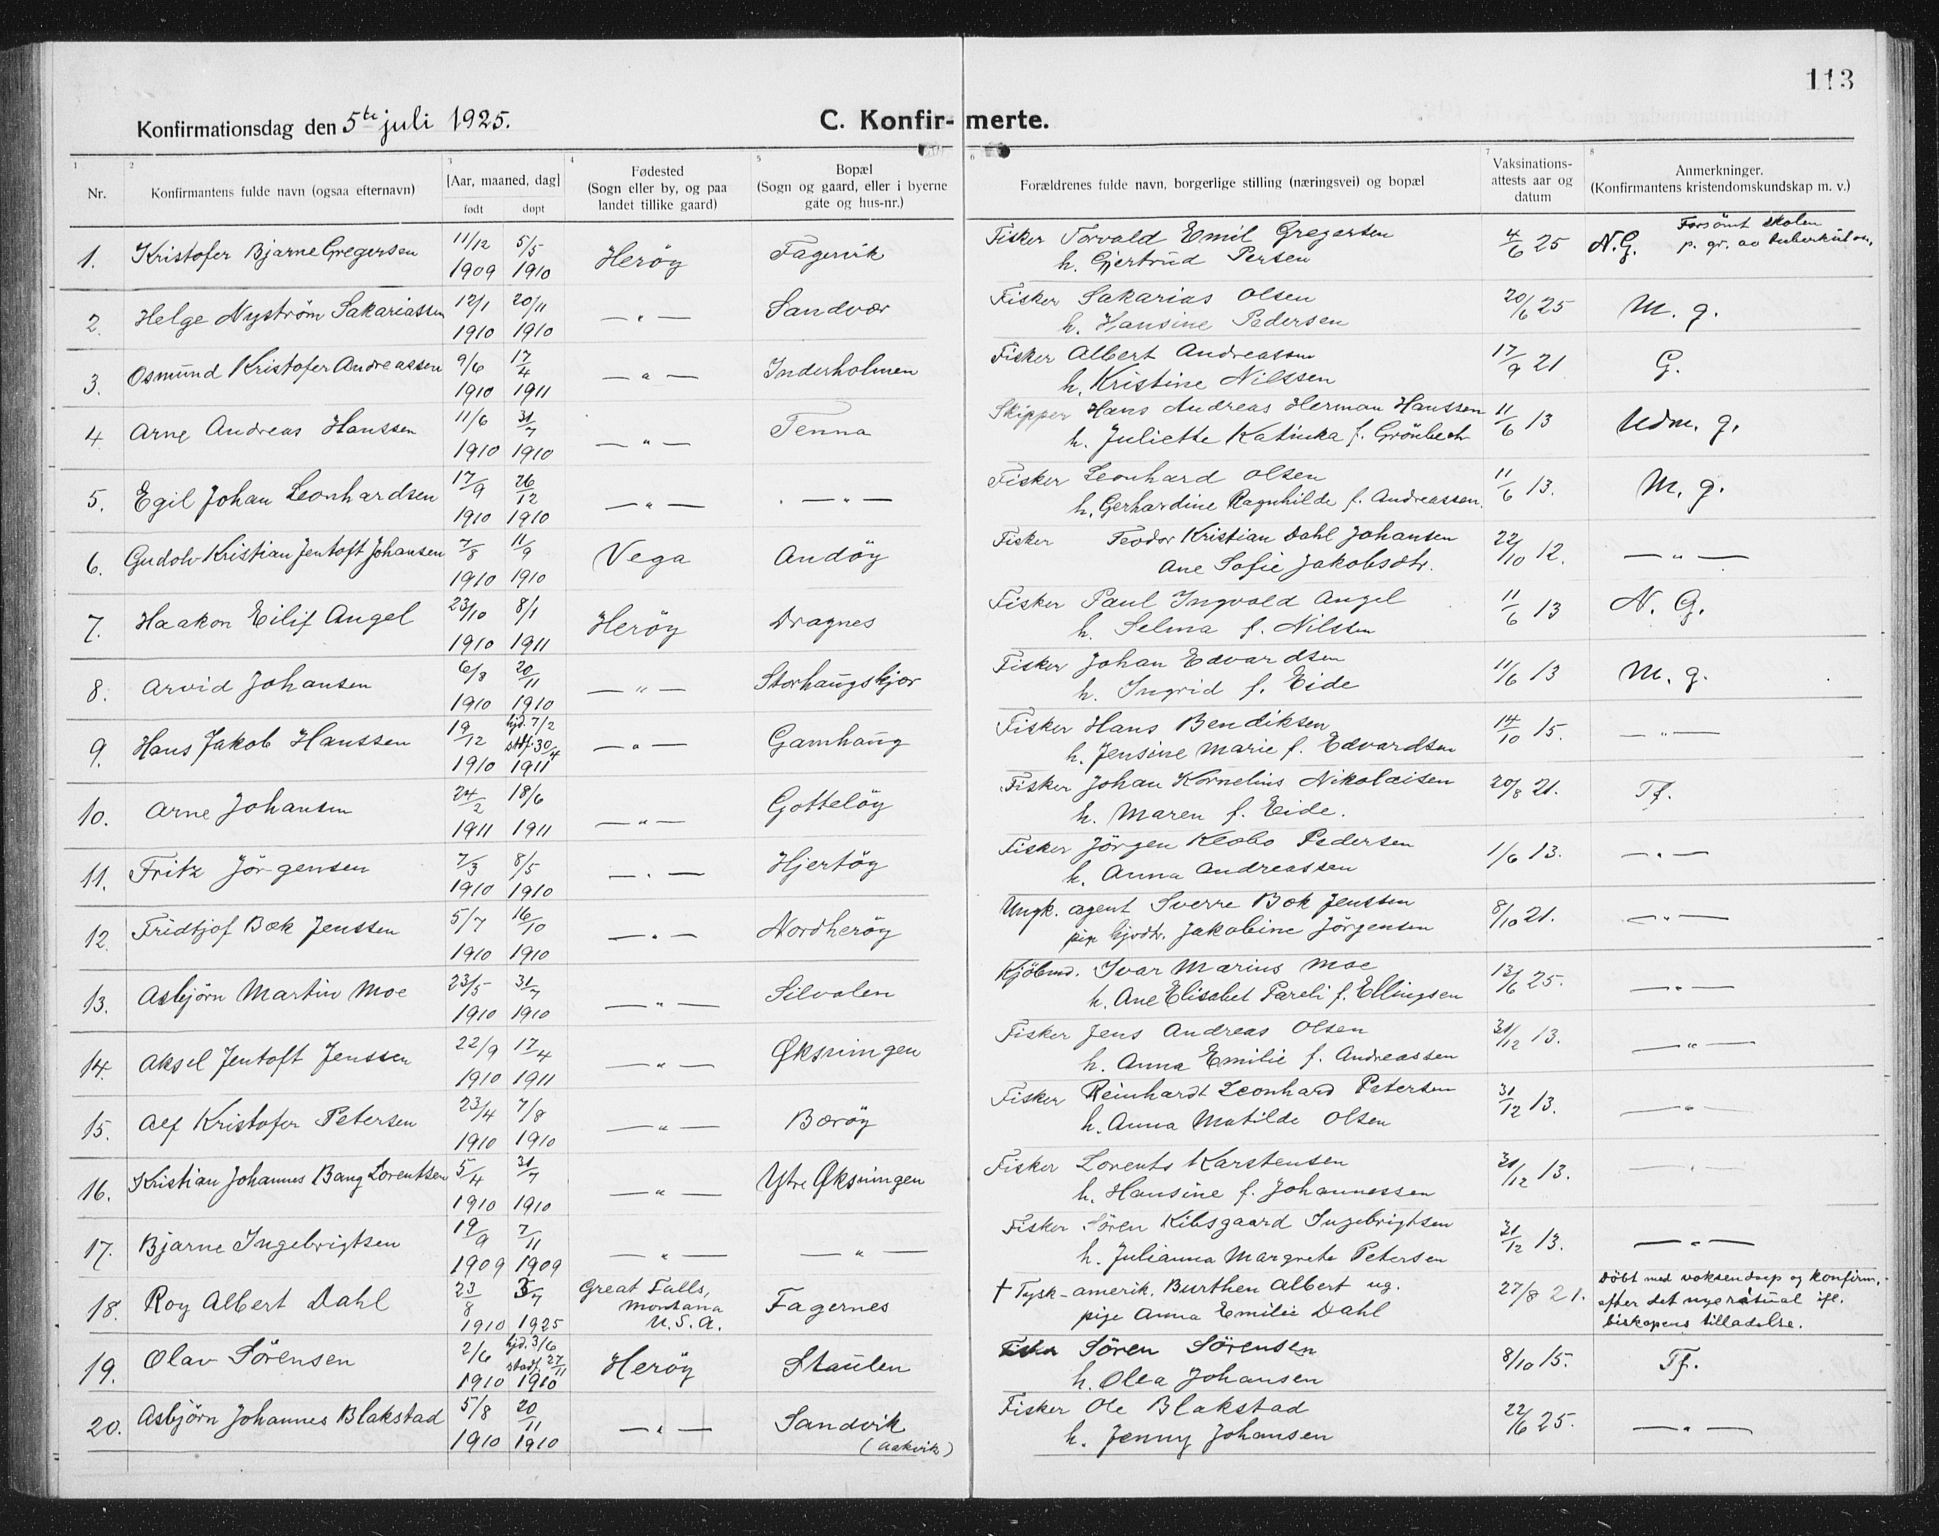 113
Konfirmationsdag den 5te juli 1925.
C. Konfirmerte.
1 2 3 4 5 6 7 8
Nr. Konfirmantens fulde navn (ogsaa efternavn) [Aar, maaned, dag] født døpt Fødested (Sogn eller by, og paa landet tillike gaard) Bopæl (Sogn og gaard, eller i byerne gate og hus-nr.) Forældrenes fulde navn, borgerlige stilling (næringsvei) og bopæl Vaksinations-attests aar og datum Anmerkninger. (Konfirmantens kristendomskundskap m. v.)
1. Kristofer Bjarne Gregersen 11/12 1909 5/5 1910 Herøy Fagervik Fisker Torvald Emil Gregersen h. Gjertrud Persen 4/6 25 N.G. Forsømt skolen p. gr. av tuberkulon,
2. Helge Nyström Sakariassen 12/1 1910 20/11 1910 — " — Sandvær Fisker Sakarias Olsen h. Hansine Pedersen 20/6 25 M. g.
3. Osmund Kristofer Andreassen 9/6 1910 17/4 1911 — " — Inderholmen Fisker Albert Andreassen h. Kristine Nilssen 17/9 21 G.
4 Arne Andreas Hanssen 11/6 1910 31/7 1910 — " — Tenna Skipper Hans Andreas Herman Hanssen h. Juliette Katinka f. Grönbech 11/6 13 Udm. g.
5. Egil Johan Leonhardsen 17/9 1910 26/12 1910 — " — — " — Fisker Leonhard Olsen h. Gerhardine Ragnhilde f. Andreassen. 11/6 13. M. g.
6. Gudolv Kristian Jentoft Johansen 7/8 1910 11/9 1910 Vega Andöy Fisker Teodor Kristian Dahl Johansen Ane Sofie Jakobsdtr. 22/10 12. — " —
7. Haakon Eilif Angel 23/10 1910 8/1 1911 Heröy Dragnes Fisker Paul Ingvald Angel h. Selma f. Nilssen 11/6 13 N. G.
8. Arvid Johansen 6/8 1910 20/11 1910 — " — Storhaugskjær Fisker Johan Edvardsen h. Ingrid f. Eide 11/6 13 M. g.
9. Hans Jakob Hanssen 19/12 1910 hjd. 7/2 stff. 30/4 1911 — " — Gamhaug Fisker Hans Bendiksen h. Jensine Marie f. Edvardsen 14/10 15. — " —
10. Arne Johansen 24/2 1911 18/6 1911 — " — Gotteløy Fisker Johan Kornelius Nikolaisen h. Maren f. Eide. 20/8 21. Tf.
11. Fritz Jörgensen 7/3 1910 8/5 1910 — " — Hjertöy Fisker Jörgen Klobo Pedersen h. Anna Andreassen 1/6 13. — " —
12. Fridtjof Bæk Jenssen 5/7 1910 16/10 1910 — " — Nordheröy Ungk. agent Sverre Bæk Jenssen pige Jakobine Jörgensen 8/10 21. — " —
13. Asbjörn Martin Moe 23/5 1910 31/7 1910 — " — Silvalen Kjöbmd. Ivar Marius Moe h. Ane Elisabet Pareli f. Ellingsen 13/6 25. — " —
14. Aksel Jentoft Jenssen 22/9 1910 17/4 1911 — " — Øksningen Fisker Jens Andreas Olsen h. Anna Emilie f. Andreassen 31/12 13. — " —
15. Alf Kristofer Petersen 23/4 1910 7/8 1910 — " — Bæröy Fisker Reinhardt Leonhard Petersen h. Anna Matilde Olsen 31/12 13. — " —
16. Kristian Johannes Bang Lorentsen 5/4 1910 31/7 1910 — " — Ytre Øksningen Fisker Lorents Karstensen h. Hansine f. Johannessen 31/12 13. — " —
17. Bjarne Ingebrigtsen 19/9 1909 7/11 1909 — " — — " — Fisker Sören Kibsgaard Ingebrigtsen h. Julianna Margrete Petersen 31/12 13. — " —
18. Roy Albert Dahl 23/8 1910 5/7 1925 Great Falls, Montana U.S.A. Fagernes † Tysk-amerik. Burthen Albert ug. pige Anna Emilie Dahl 27/8 21. Döbt med voksendaap og konfirm. efter det nye ritual ifl. biskopens tilladelse.
19. Olav Sörensen 2/6 1910 hjd. 3/6 stadf. 27/11 1910 Heröy Staulen Sören Sörensen h. Olea Johansen 8/10 15. Tf.
20. Asbjörn Johannes Blakstad 5/8 1910 20/11 1910 — " — Sandvik (Aakvik) Fisker Ole Blakstad h. Jenny Johansen 22/6 25. — " —